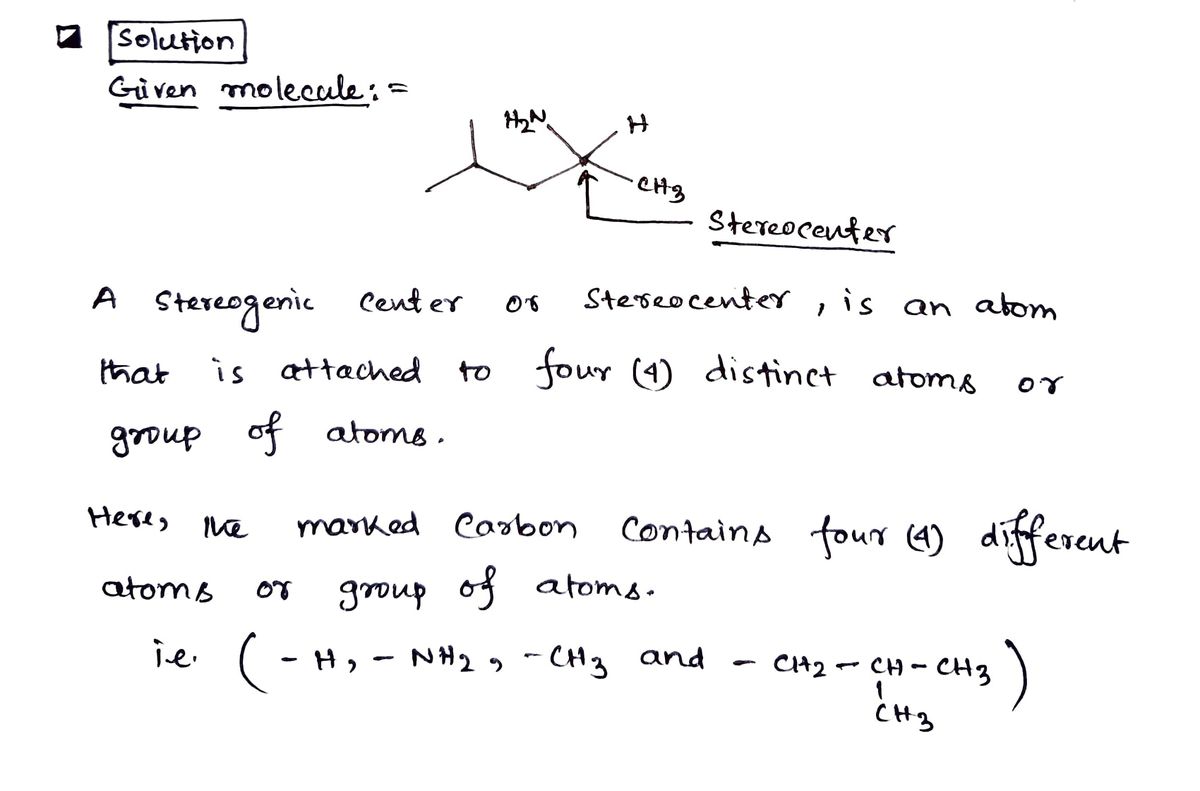 Solution
Given molecule:=
H2N
H
CH3
Stereocenter
A Stereogenic center or Stereocenter, is an atom
that is attached to four (4) distinct atoms or
group of atoms.
Here, the marked Carbon Contains four (4) different
atoms or group of atoms.
i.e. (-H, -NH2, -CH3 and -CH2-CH-CH3)
CH3